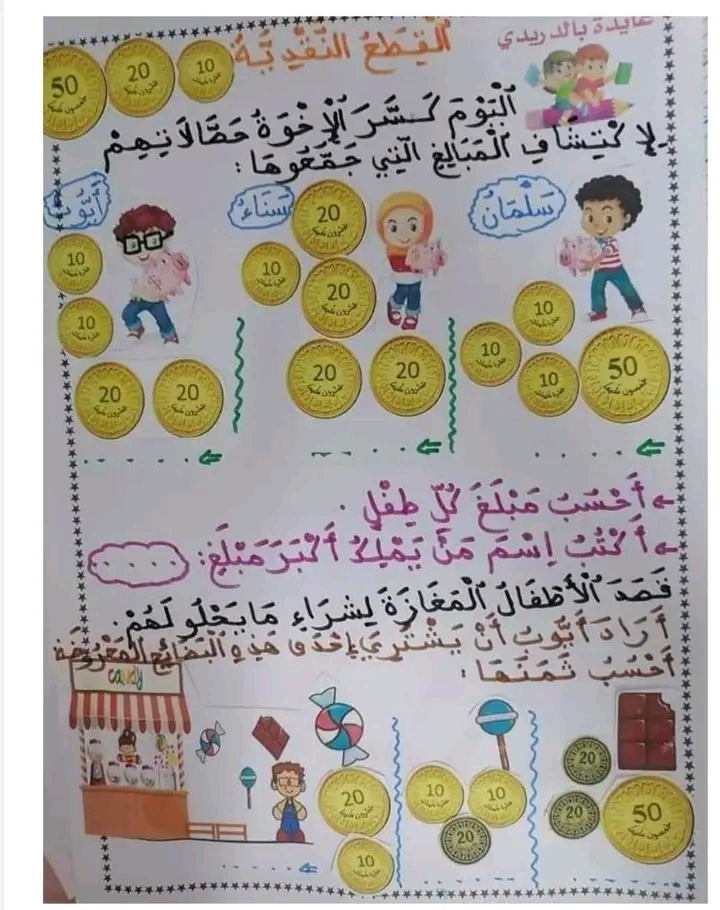 عايدة بالدريدي
القِطَعُ النَّقْدِيَّةُ
50 20 10
اَلْيَوْمَ كَسَّرَ الْإِخْوَةُ حَصَّالَاتِهِمْ
لِاكْتِشَافِ الْمَبَالِغِ الَّتِي جَمَّعُوهَا:
سَلْمَانُ
سَنَاءُ
أَيُّوبُ
10 10 10 50
20 10 20 20 20
10 10 20 20
← أَحْسُبُ مَبْلَغَ كُلِّ طِفْلٍ.
← أَكْتُبُ اِسْمَ مَنْ يَمْلِكُ أَكْبَرَ مَبْلَغٍ: .....
قَصَدَ الْأَطْفَالُ الْمَغَازَةَ لِشِرَاءِ مَا يَحْلُو لَهُمْ.
أَرَادَ أَيُّوبُ أَنْ يَشْتَرِيَ إِحْدَى هَذِهِ الْبَضَائِعِ الْمَعْرُوضَةِ
أَحْسُبُ ثَمَنَهَا:
candy
20 20 50
10 10 20
20 10